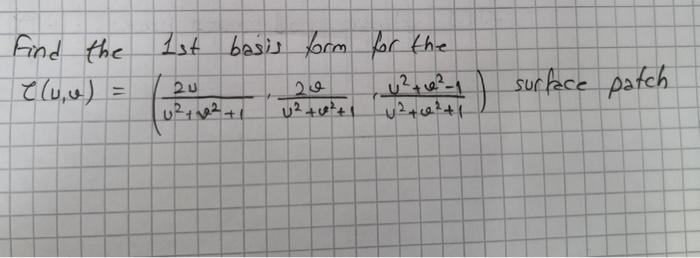 Find the 1st basis form for the
τ(u,v) = (2u/(u²+v²+1), 2v/(u²+v²+1), (u²+v²-1)/(u²+v²+1)) surface patch